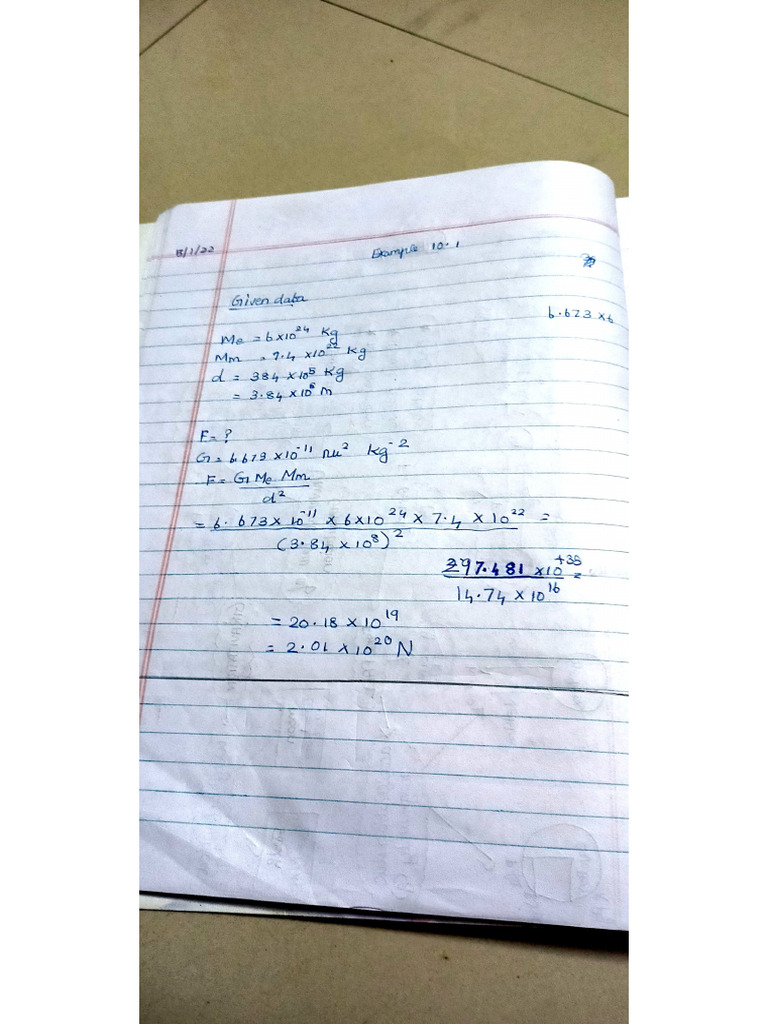 13/1/22
Example 10.1
Given data
6.673 x 6
Me = 6×10²⁴ Kg
Mm = 7.4 ×10²² Kg
d = 384 ×10⁵ Kg
= 3.84 ×10⁸ m
F= ?
G = 6.673 ×10⁻¹¹ nu² Kg⁻²
F= G Me Mm / d²
= 6.673× 10⁻¹¹ × 6×10²⁴ × 7.4 × 10²² / (3.84 × 10⁸)² =
297.481 ×10⁺³⁵ / 14.74 × 10¹⁶ =
= 20.18 × 10¹⁹
= 2.01 ×10²⁰ N